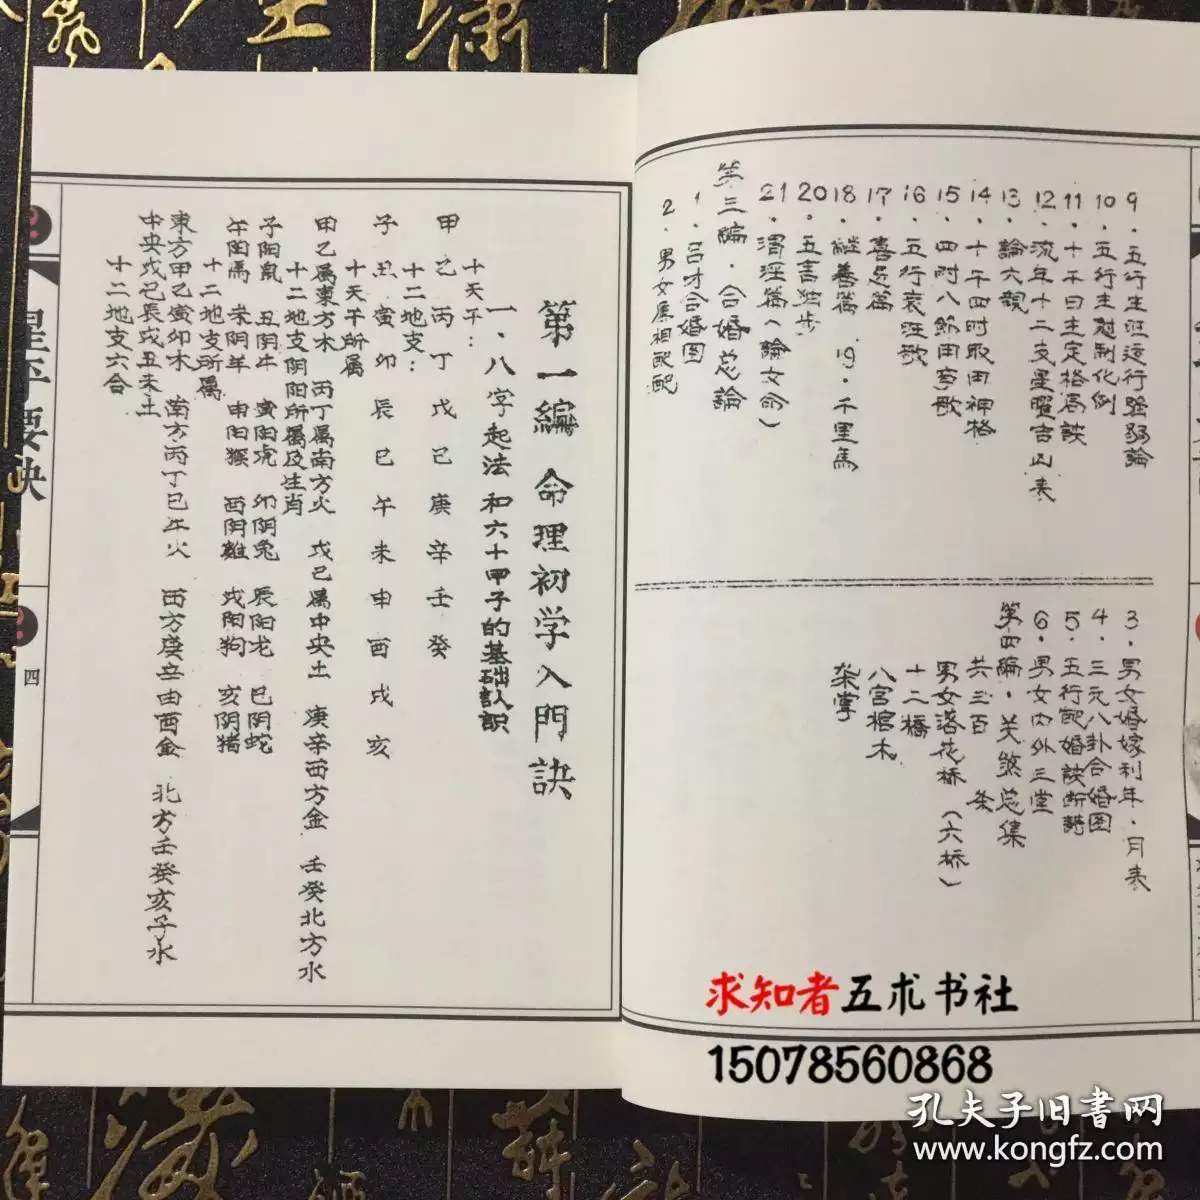 9．五行生旺运行强弱论
10．五行生尅制化例
11．十干日主定格局诀
12．流年十二支星曜吉凶表
13．論六親
14．十干四时取用神格
15．四时八節田亨歌
16．五行衰旺歌
17．喜忌篇
18．継善篇 19．千里馬
20．五言独步
21．渭泾篇（論女命）
第三編．合婚总論
1．吕才合婚图
2．男女属相配配
3．男女婚嫁利年．月表
4．三元八卦合婚图
5．五行配婚訣断語
6．男女内外三堂
第四編．关煞总集
共三百 条
男女落花桥（六桥）
十二橋
八宮棺木
架掌
第一編 命理初学入門訣
一．八字起法和六十甲子的基础认识
十天干：
甲乙丙丁戊己庚辛壬癸
十二地支：
子丑寅卯辰巳午未申酉戌亥
十天干所属
甲乙属東方木 丙丁属南方火 戊己属中央土 庚辛西方金 壬癸北方水
十二地支阴阳所属及生肖
子阳鼠 丑阴牛 寅阳虎 卯阴兔 辰阳龙 巳阴蛇
午阳馬 未阴羊 申阳猴 酉阴雞 戌阳狗 亥阴猪
十二地支所属
東方甲乙寅卯木 南方丙丁巳午火 西方庚辛申酉金 北方壬癸亥子水
中央戊己辰戌丑未土
十二地支六合
星平要诀
四
求知者五术书社
15078560868
孔夫子旧書网
www.kongfz.com